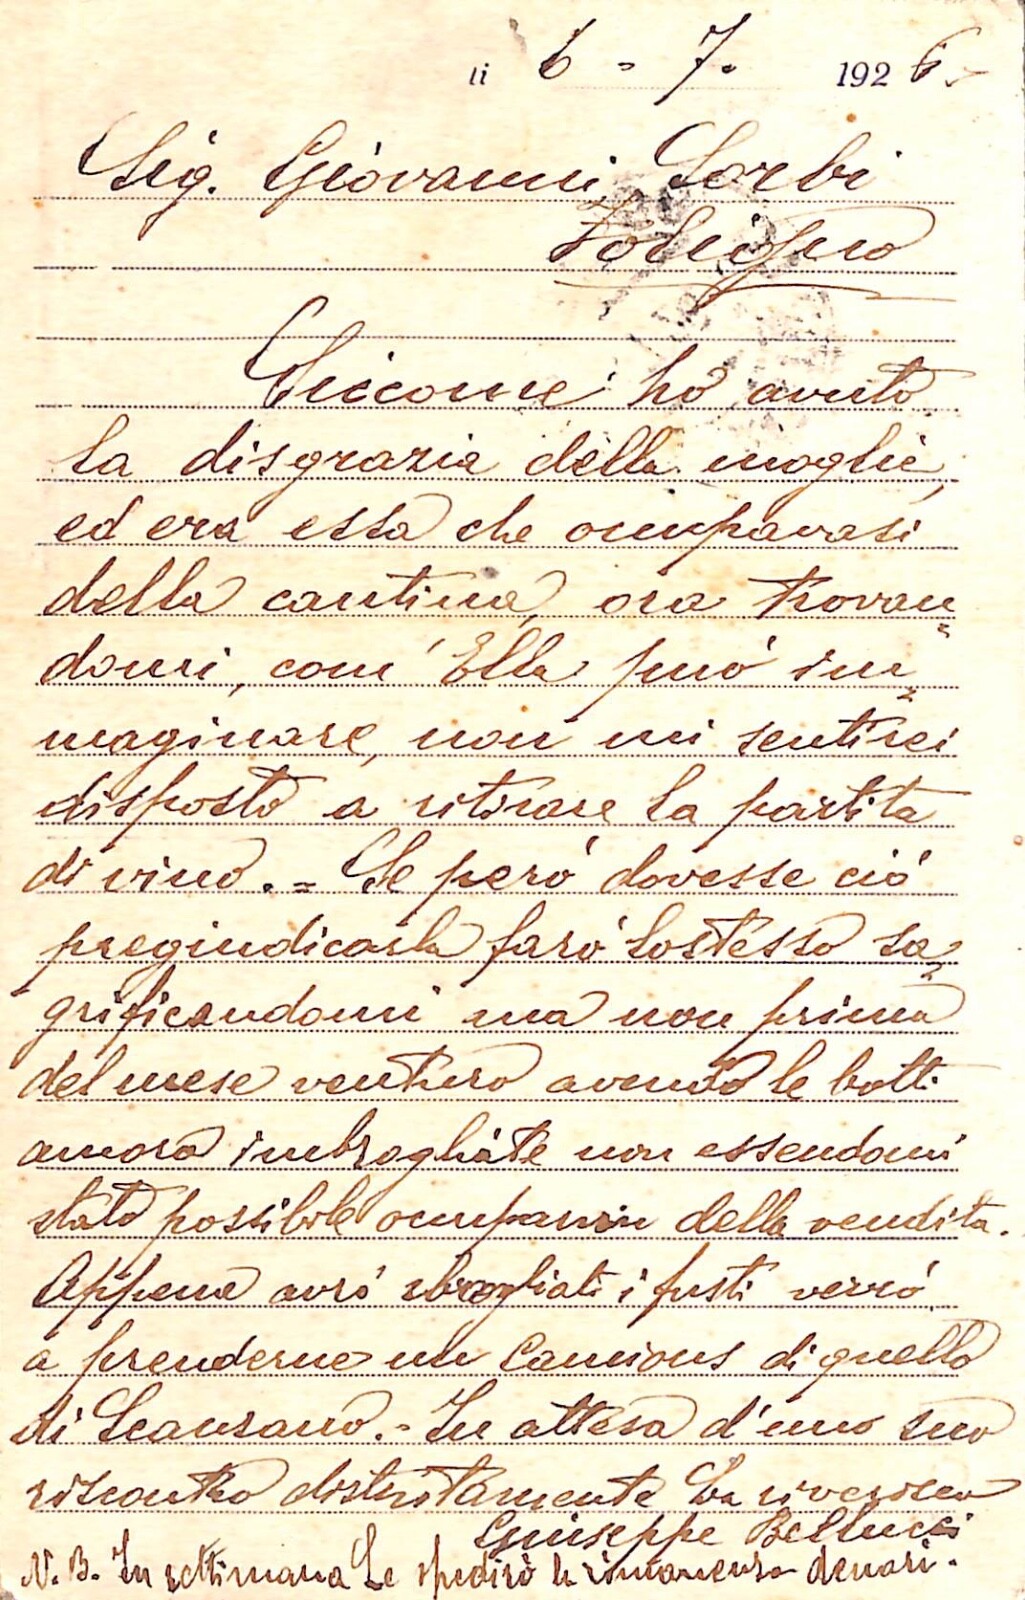 li 6 - 7. 1926.
Sig. Giovanni Sorbi
Foligno
Siccome ho avuto
la disgrazia della moglie,
ed era essa che occupavasi
della cantina, ora trovan
domi, com'Ella può im
maginare, non mi sentirei
disposto a ritirare la partita
di vino. = Se però dovesse ciò
pregiudicarla farò lo stesso sa
grificandomi ma non prima
del mese venturo avendo le botti
ancora imbrogliate non essendomi
stato possibile occuparmi della vendita.
Appena avrò sbrogliati i fusti verrò
a prenderne un Camions di quello
di Scansano. = In attesa d'uno suo
riscontro distintamente La riverisco
Giuseppe Bellucci
N. B. In settimana Le spedirò la rimanenza denari.